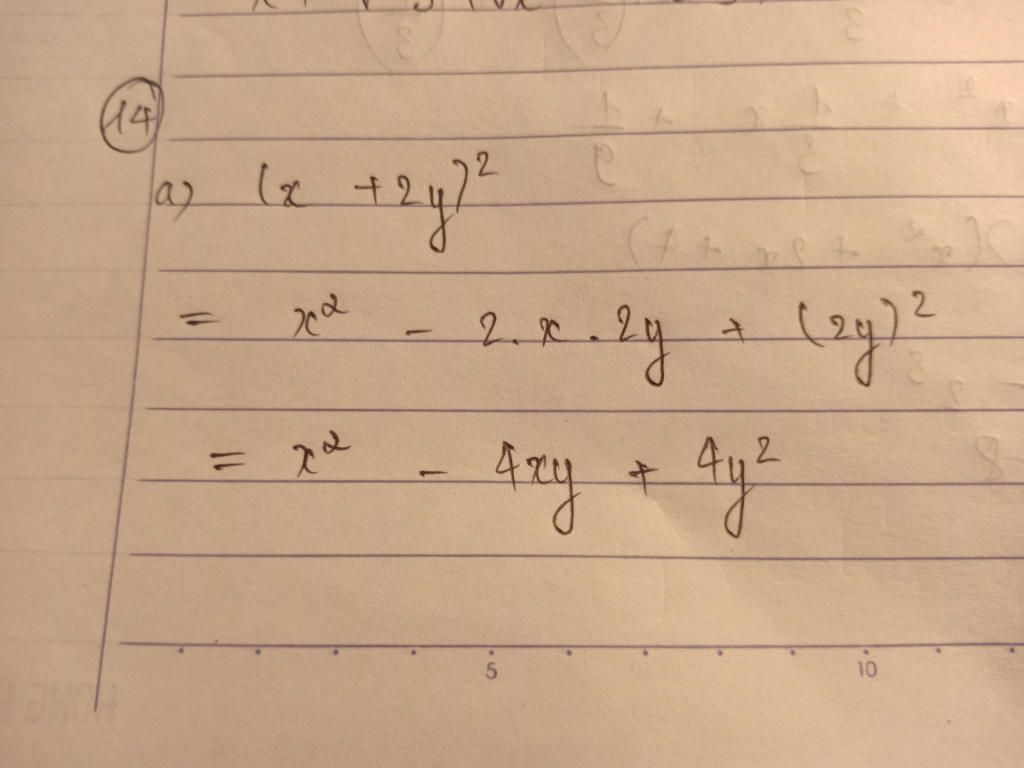 14
a) (x + 2y)²
= x² - 2.x.2y + (2y)²
= x² - 4xy + 4y²
5 10